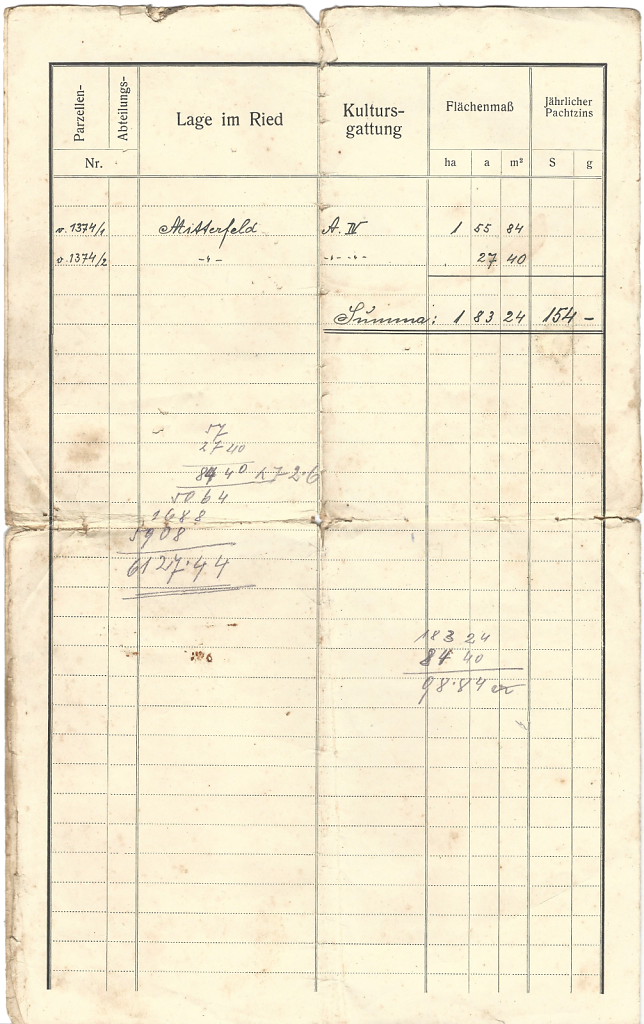 Parzellen- Abteilungs- Lage im Ried Kulturs- Flächenmaß Jährlicher
gattung Pachtzins
Nr. ha a m² S g
v. 1374/1 Mitterfeld A. IV 1 55 84
v. 1374/2 -〃- -〃- -〃- 27 40
Summa: 1 83 24 154 –
57
27 40
84 40 × 72·6
5064
1688
5908
6127·44
183 24
84 40
98·84